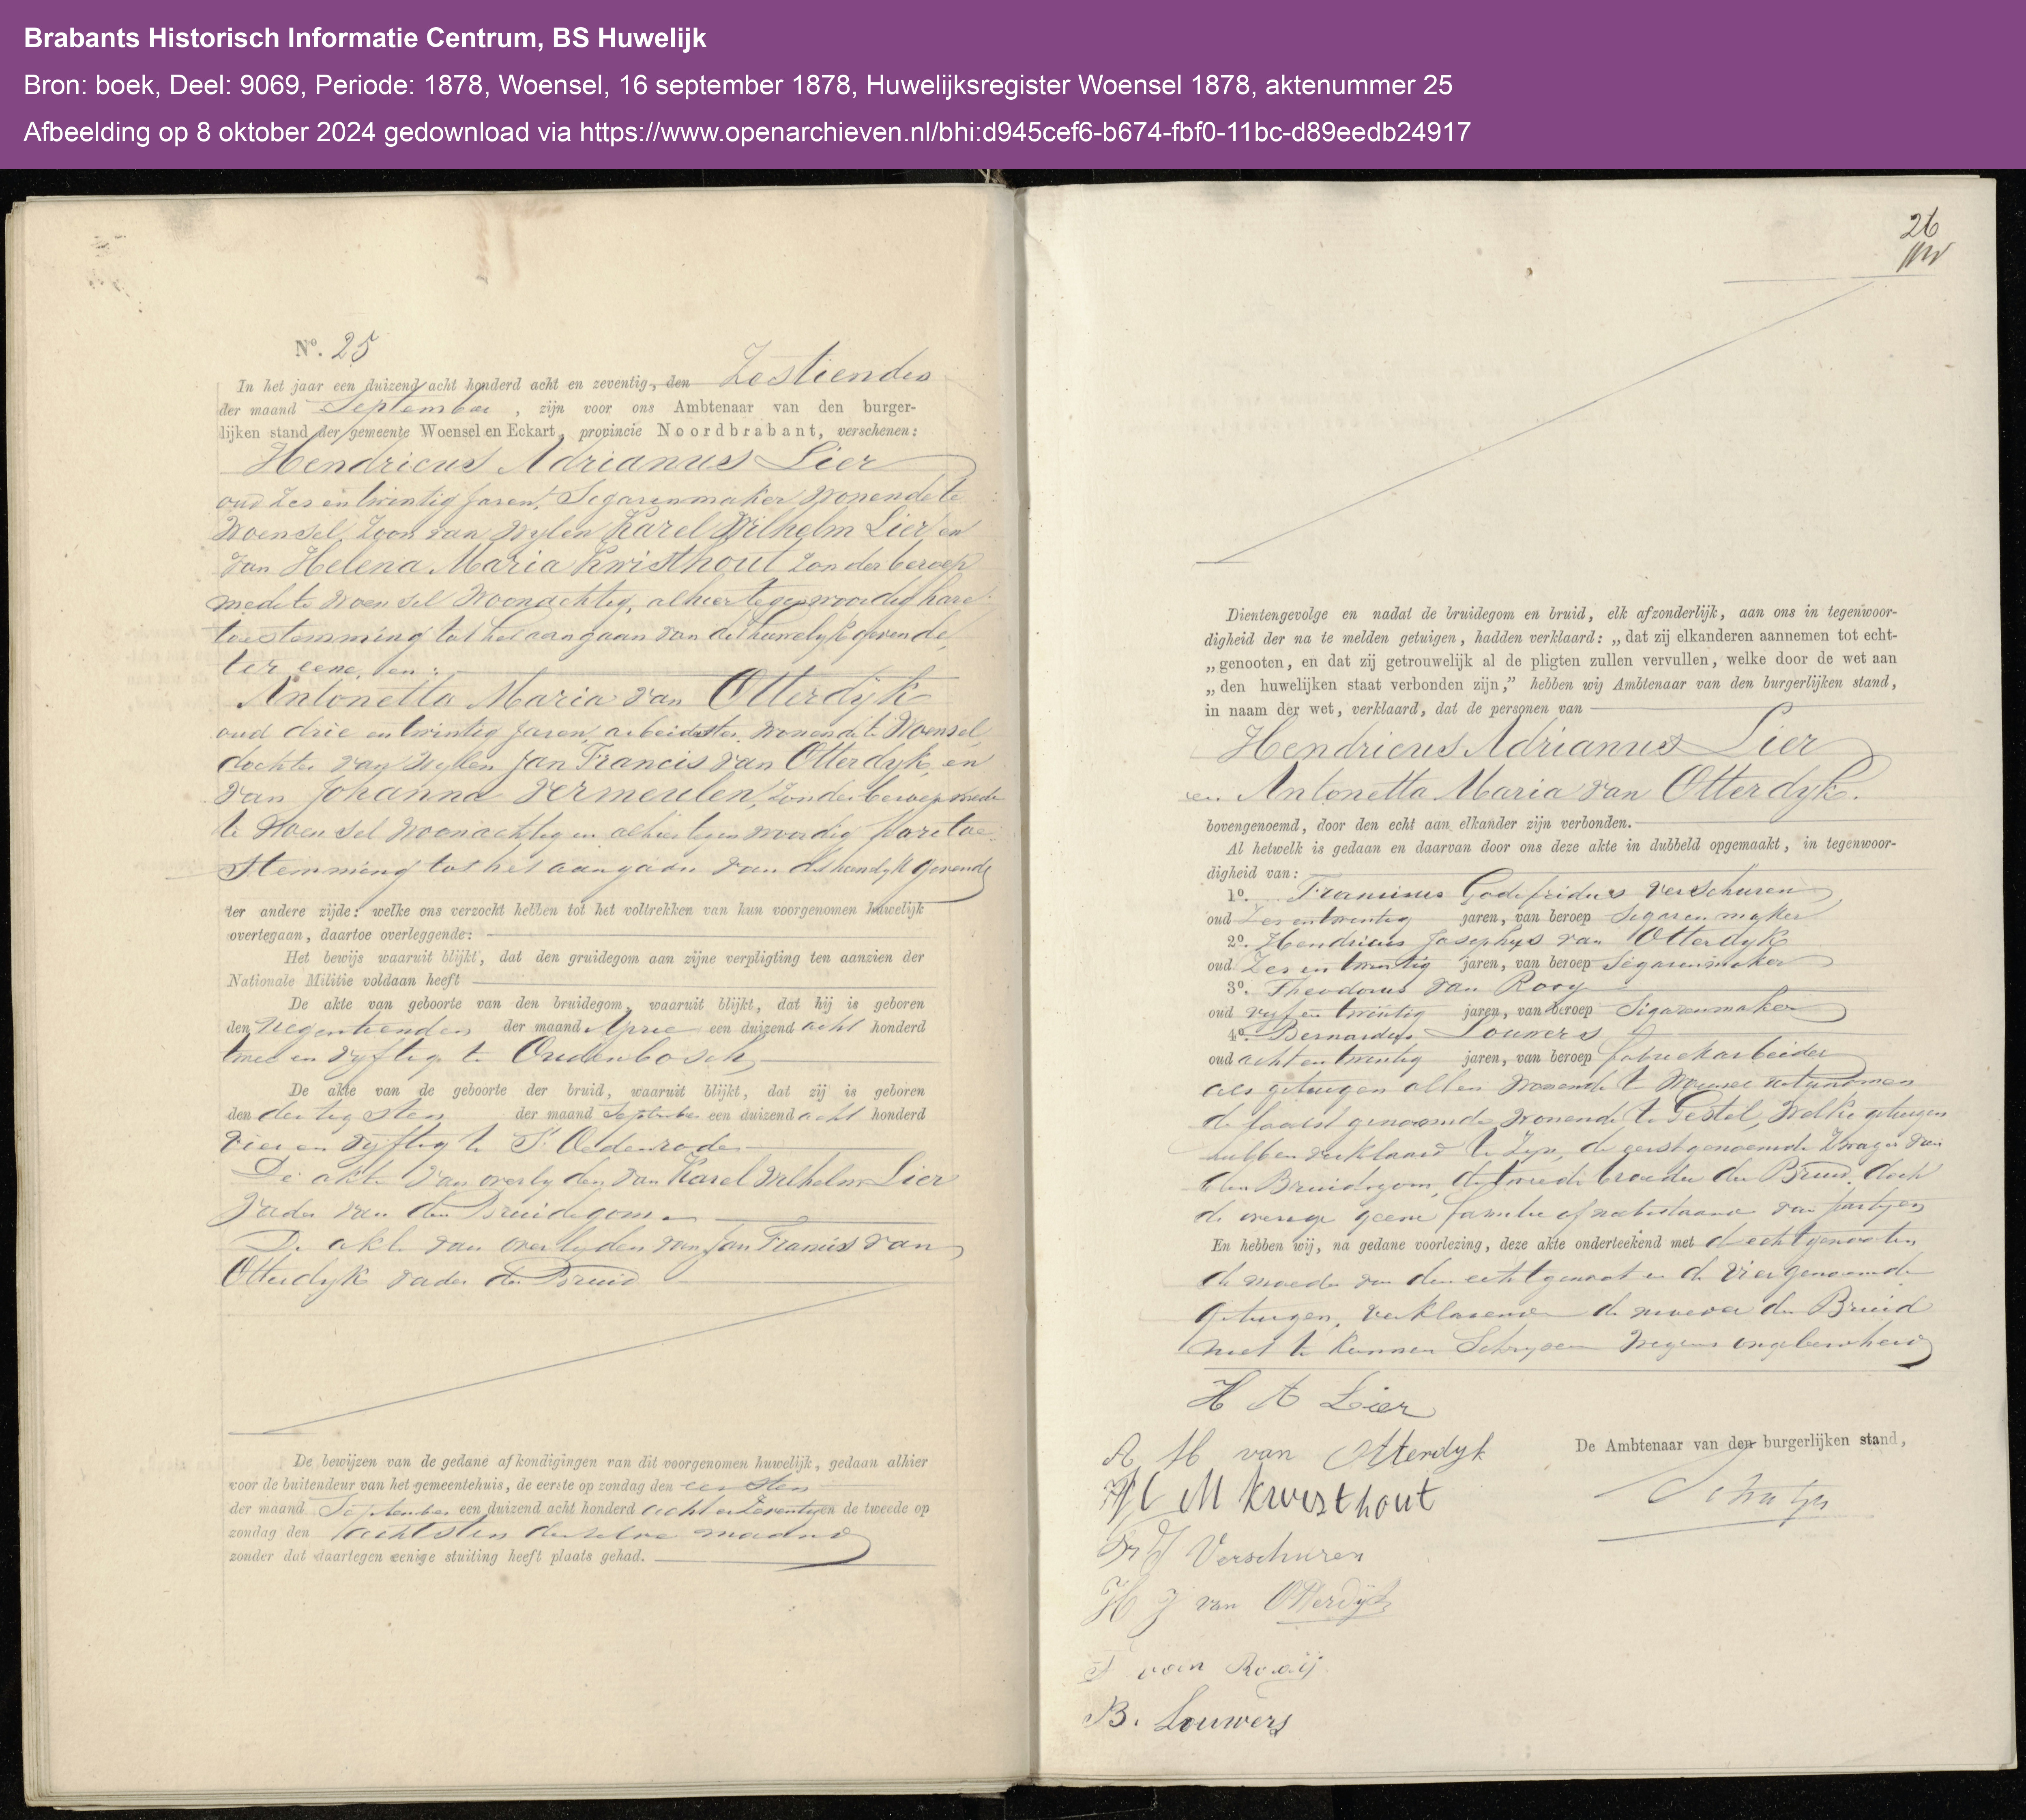 Brabants Historisch Informatie Centrum, BS Huwelijk
Bron: boek, Deel: 9069, Periode: 1878, Woensel, 16 september 1878, Huwelijksregister Woensel 1878, aktenummer 25
Afbeelding op 8 oktober 2024 gedownload via https://www.openarchieven.nl/bhi:d945cef6-b674-fbf0-11bc-d89eedb24917
No. 25
In het jaar een duizend acht honderd acht en zeventig, den Zestienden
der maand September, zijn voor ons Ambtenaar van den burger-
lijken stand der gemeente Woensel en Eckart, provincie Noordbrabant, verschenen:
Hendricus Adrianus Lier
oud zes en twintig jaren, Segarenmaker wonende te
Woensel, Zoon van wylen Karel Wilhelm Lier en
van Helena Maria Kwisthout zonder beroep
mede te Woensel Woonachtig, alhier tegenwoordig hare
toestemming tot het aangaan van dit huwelyk gevende,
ter eene, en:
Antonetta Maria van Otterdijk
oud drie en twintig jaren, arbeidster, wonende te Woensel,
dochter van wylen Jan Francis van Otterdyk, en
van Johanna Vermeulen, zonder beroep mede
te Woensel Woonachtig en alhier tegenwoordig hare toe-
stemming tot het aangaan van dit huwelyk gevende
ter andere zijde: welke ons verzocht hebben tot het voltrekken van hun voorgenomen huwelijk
overtegaan, daartoe overleggende:
Het bewijs waaruit blijkt, dat den gruidegom aan zijne verpligting ten aanzien der
Nationale Militie voldaan heeft
De akte van geboorte van den bruidegom, waaruit blijkt, dat hij is geboren
den negentienden der maand April een duizend acht honderd
twee en vyftig te Oudenbosch,
De akte van de geboorte der bruid, waaruit blijkt, dat zij is geboren
den dertigsten der maand September een duizend acht honderd
vier en vyftig te St Oedenrode
De akte van overlyden van Karel Wilhelm Lier
Vader van den Bruidegom
De akte van overlyden van Jan Francis van
Otterdyk vader der Bruid
De bewijzen van de gedane afkondigingen van dit voorgenomen huwelijk, gedaan alhier
voor de buitendeur van het gemeentehuis, de eerste op zondag den eersten
der maand September een duizend acht honderd acht en Zeventig en de tweede op
zondag den achtsten derzelve maand
zonder dat daartegen eenige stuiting heeft plaats gehad.
26
Dientengevolge en nadat de bruidegom en bruid, elk afzonderlijk, aan ons in tegenwoor-
digheid der na te melden getuigen, hadden verklaard: „dat zij elkanderen aannemen tot echt-
„genooten, en dat zij getrouwelijk al de pligten zullen vervullen, welke door de wet aan
„den huwelijken staat verbonden zijn,” hebben wij Ambtenaar van den burgerlijken stand,
in naam der wet, verklaard, dat de personen van
Hendricus Adrianus Lier
en Antonetta Maria van Otterdyk.
bovengenoemd, door den echt aan elkander zijn verbonden.
Al hetwelk is gedaan en daarvan door ons deze akte in dubbeld opgemaakt, in tegenwoor-
digheid van:
1o. Francinus Godefridus Verschuren,
oud Zes en twintig jaren, van beroep Segarenmaker
2o. Hendricus Josephus van Otterdyk
oud Zes en twintig jaren, van beroep Segarenmaker
3o. Theodorus van Rooy
oud vyf en twintig jaren, van beroep Sigarenmaker
4o. Bernardus Louwers
oud acht en twintig jaren, van beroep fabriekarbeider
als getuigen allen wonende te Woensel uitgenomen
de laatstgenoemde wonende te Gestel, welke getuigen
hebben verklaard te Zyn, de eerstgenoemde Zwager van
den Bruidegom, de tweede broeder der Bruid, doch
de overige geene familie of nabestaande van partyen
En hebben wij, na gedane voorlezing, deze akte onderteekend met de echtgenooten,
de moeder van den echtgenoot en de vier genoemde
getuigen, verklarende de moeder der Bruid
niet te kunnen Schryven wegens ongeleerdheid
H A Lier
A M van Otterdyk
H M Kwisthout
De Ambtenaar van den burgerlijken stand,
Fr G Verschuren
H J van Otterdijk
T van Rooij
B. Louwers